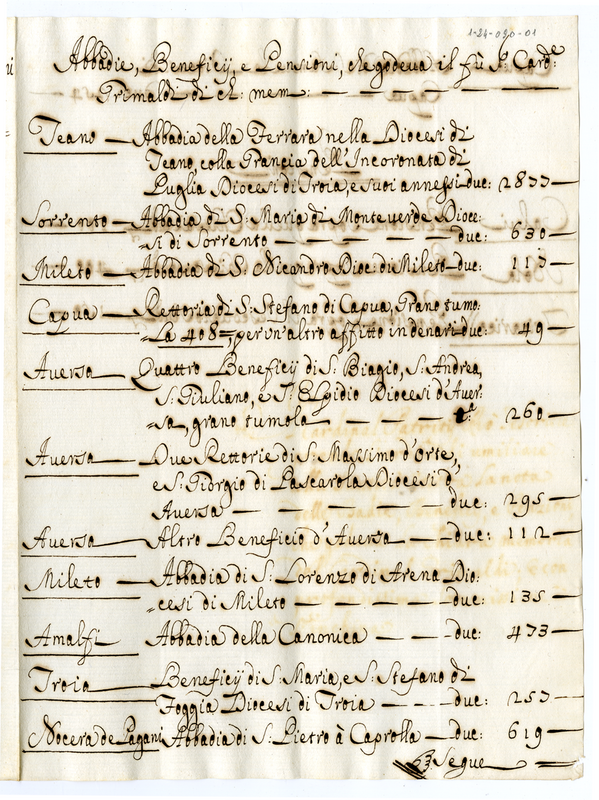 1-24-020-01
Abbadie, Beneficij, e Pensioni, che godeva il fù Sr: Carde:
Grimaldi di ch: mem: — — — — —
Teano — Abbadia della Ferrara nella Diocesi di
Teano, colla Grancia dell'Incoronata di
Puglia Diocesi di Troia, e suoi annessi duc: 2833 —
Sorrento — Abbadia di S: Maria di Monteverde Dioce:
=si di Sorrento — — — — — duc: 630 —
Mileto — Abbadia di S: Nicandro Dioc: di Mileto — duc: 113 —
Capua — Rettoria di S: Stefano di Capua, Grano tumo:
=la 408=, per un'altro affitto in denari duc: 49 —
Aversa — Quattro Beneficij di S: Biagio, S: Andrea,
S: Giuliano, e S: Elpidio Diocesi d'Aver:
=sa, grano tumola — — — — 260 —
Aversa — Due Rettorie di S: Massimo d'Orte,
e S: Giorgio di Pascarola Diocesi d'
Aversa — — — — — duc: 295 —
Aversa — Altro Beneficio d'Aversa — duc: 112 —
Mileto — Abbadia di S: Lorenzo di Arena Dio:
=cesi di Mileto — — — — — duc: 135 —
Amalfi — Abbadia della Canonica — — duc: 473 —
Troia — Beneficij di S: Maria, e S: Stefano di
Foggia Diocesi di Troia — — — duc: 253 —
Nocera de Pagani Abbadia di S: Pietro à Caprolla — duc: 619 —
63 Segue =